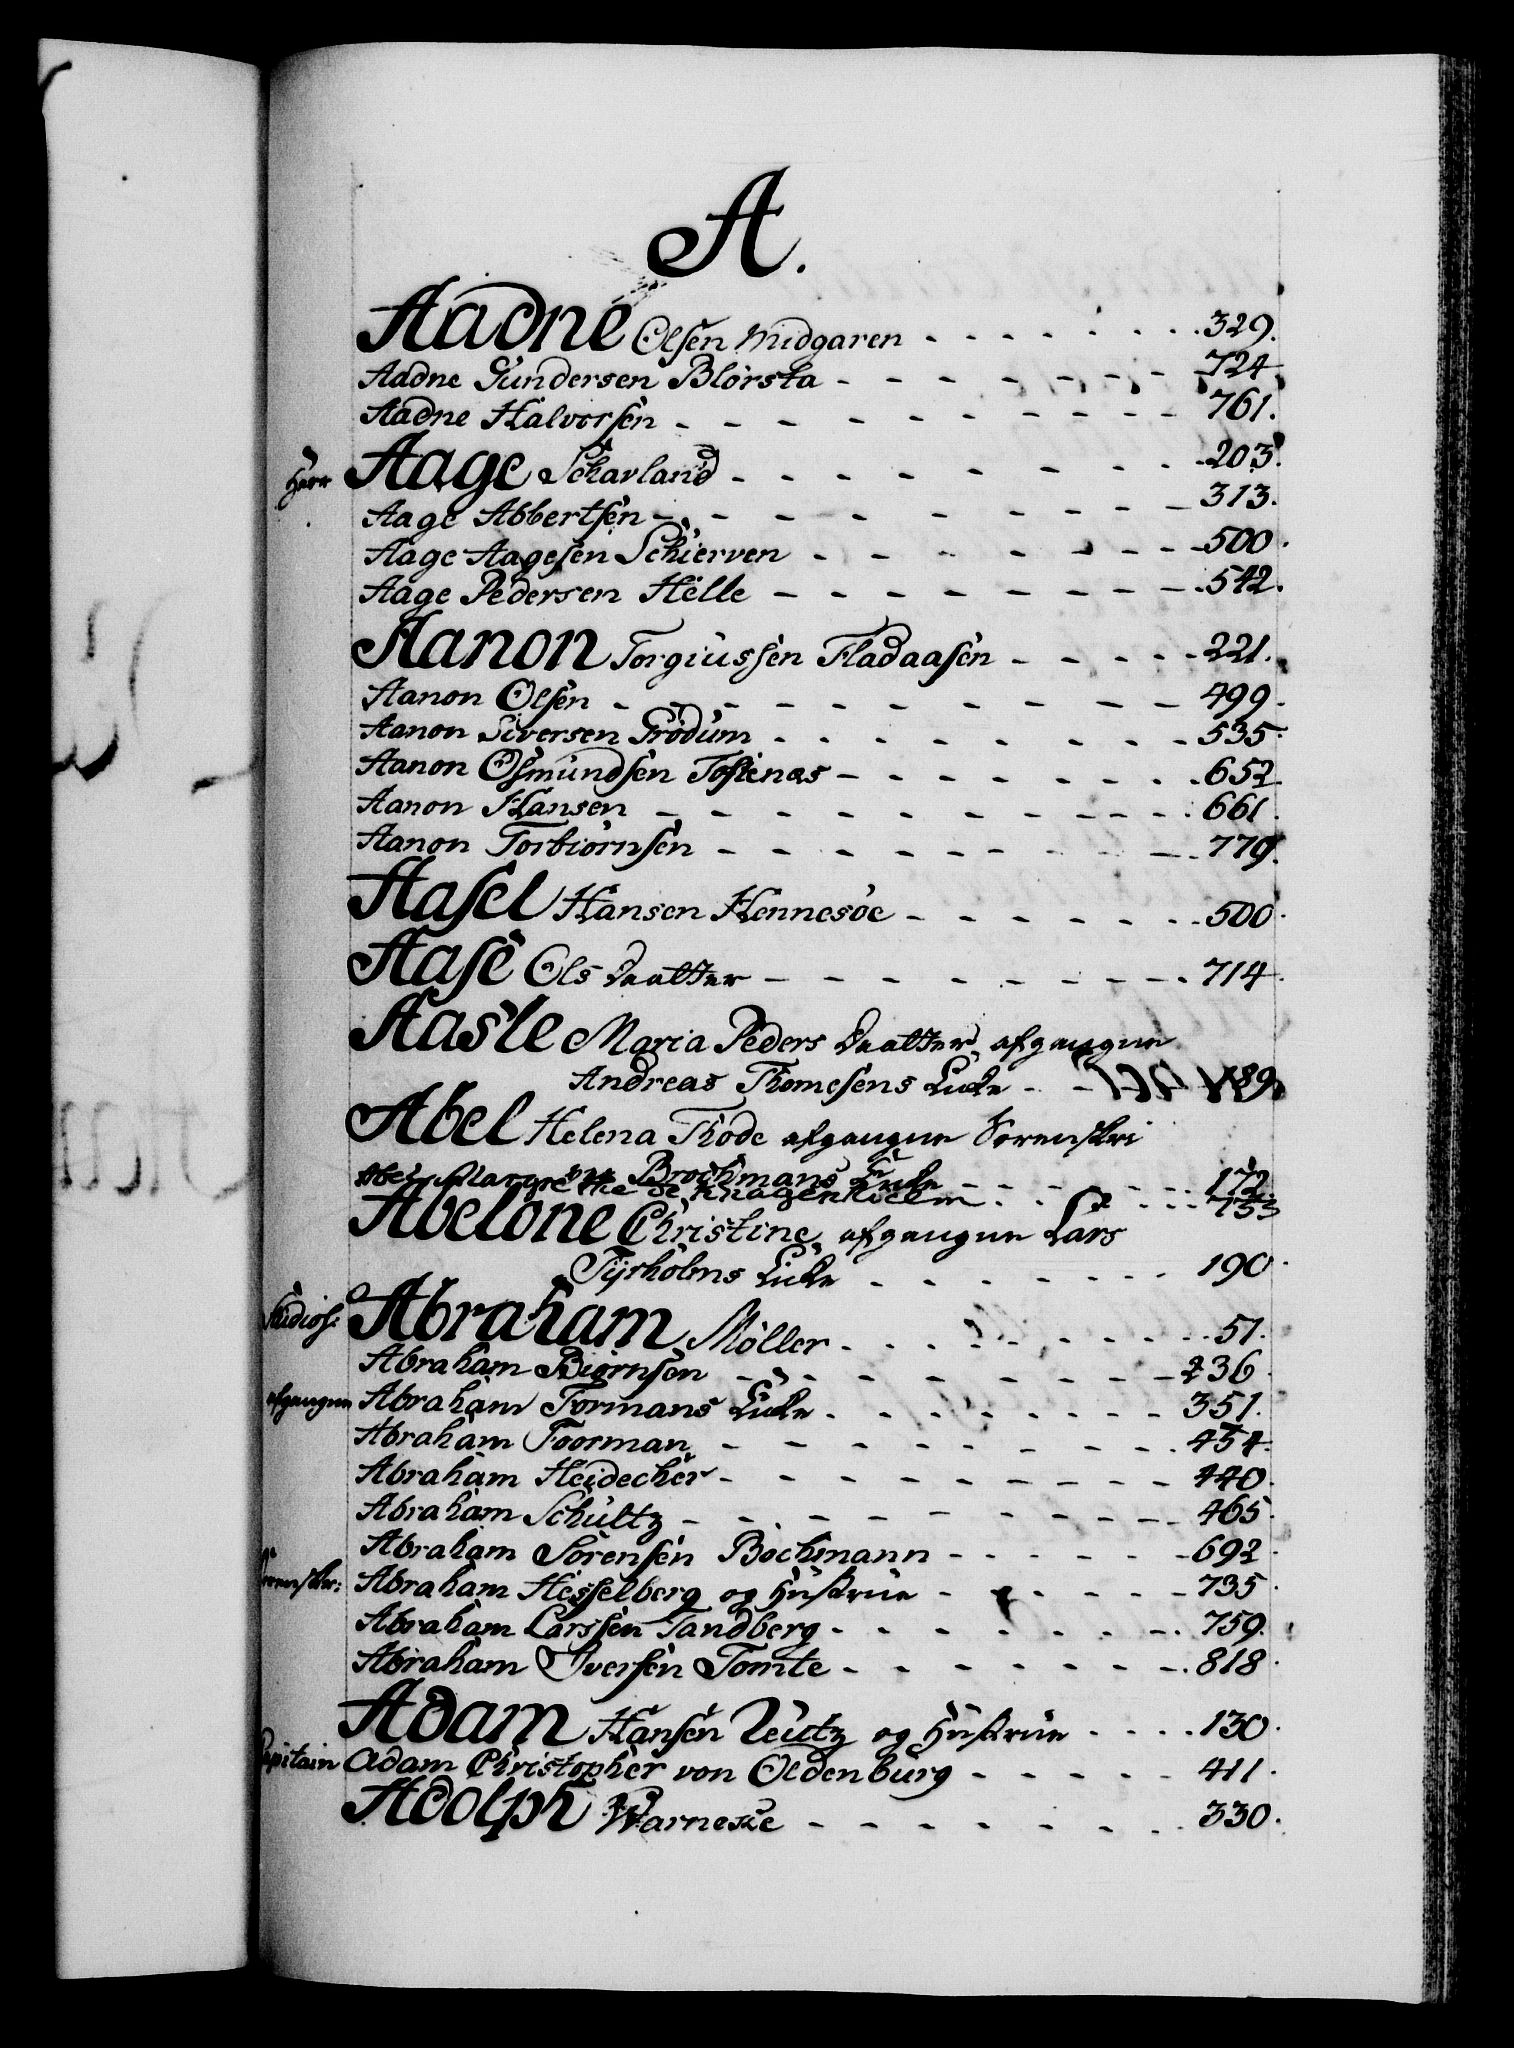 A.
Aadne Olsen Midgaren 329.
Aadne Gundersen Blörsta 724
Aadne Halvorsen 761.
Herr Aage Schavland 203.
Aage Abbertsen 313.
Aage Aagesen Schierven 500.
Aage Pedersen Helle 542.
Aanon Torgiussen Fladaasen 221.
Aanon Olsen 499.
Aanon Siversen Frödum 535.
Aanon Osmundsen Tostenæs 652.
Aanon Hansen 661.
Aanon Torbiörnsen 779.
Aasel Hansen Hennesöe 500.
Aase Ols daatter 714.
Aasle Maria Peders daatter afgangne
Andreas Thomesens Enke 89.
Abel Helena Thode afgangne Sorenskri
ver Brochmans Enke 172.
Abel Margrethe de Knagenhielm 753
Abelone Christine afgangne Lars
Tyrholms Enke 190.
Studios: Abraham Møller 51.
Abraham Biørnsen 236.
afgangne Abraham Formans Enke 351.
Abraham Foorman 454.
Abraham Heidecher 440.
Abraham Schultz 465.
Abraham Sörensen Bochmann 692.
Sorenskr: Abraham Hesselberg og Hustrue 735.
Abraham Larssen Sandberg 759.
Abraham Iversen Tomte 818.
Adam Hansen Leutz og Hustrue 130.
Capitain Adam Christopher von Oldenburg 411.
Adolph Warneske 330.